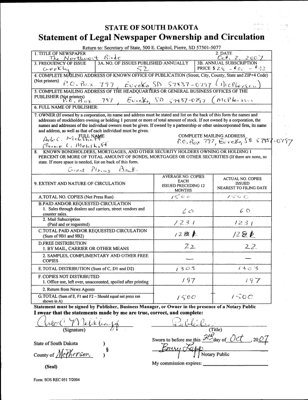 STATE OF SOUTH DAKOTA
Statement of Legal Newspaper Ownership and Circulation
Return to: Secretary of State, 500 E. Capitol, Pierre, SD 57501-5077
1. TITLE OF NEWSPAPER
The Northwest Blade
2. DATE
Oct 2, 2007
3. FREQUENCY OF ISSUE
weekly
3A. NO. OF ISSUES PUBLISHED ANNUALLY
52
3B. ANNUAL SUBSCRIPTION
PRICE
4. COMPLETE MAILING ADDRESS OF KNOWN OFFICE OF PUBLICATION (Street, City, County, State and ZIP+4 Code)
(Not printers)
P.O. Box 797, Eureka SD 57437-0797 (McPherson)
5. COMPLETE MAILING ADDRESS OF THE HEADQUARTERS OR GENERAL BUSINESS OFFICES OF THE
PUBLISHER (Not printer)
P.O. Box 797, Eureka, SD 57437-0797 (McPherson)
6. FULL NAME OF PUBLISHER:
7. OWNER (If owned by a corporation, its name and address must be stated and also on the back of this form the names and
addresses of stockholders owning or holding 1 percent or more of total amount of stock. If not owned by a corporation, the
names and addresses of the individual owners must be given. If owned by a partnership or other unincorporated firm, its name
and address, as well as that of each individual must be given.
FULL NAME
COMPLETE MAILING ADDRESS
P.O. Box 797, Eureka SD 57437-0797
8. KNOWN BONDHOLDERS, MORTGAGES, AND OTHER SECURITY HOLDERS OWNING OR HOLDING 1
PERCENT OR MORE OF TOTAL AMOUNT OF BONDS, MORTGAGES OR OTHER SECURITIES (If there are none, so
state. If more space is needed, list on back of this form.
Great Plains Bank
9. EXTENT AND NATURE OF CIRCULATION
AVERAGE NO. COPIES
EACH
ISSUED PRECEDING 12
MONTHS
ACTUAL NO. COPIES
ISSUED
NEAREST TO FILING DATE
A. TOTAL NO. COPIES (Net Press Run) 1500 1500
B. PAID AND/OR REQUESTED CIRCULATION
1. Sales through dealers and carriers, street vendors and
counter sales. 60 60
2. Mail Subscription
(Paid and or requested) 1231 1231
C. TOTAL PAID AND/OR REQUESTED CIRCULATION
(Sum of 9B1 and 9B2) 1281 1281
D. FREE DISTRIBUTION
1. BY MAIL, CARRIER OR OTHER MEANS 22 22
2. SAMPLES, COMPLIMENTARY AND OTHER FREE
COPIES – –
E. TOTAL DISTRIBUTION (Sum of C, D1 and D2) 1303 1303
F. COPIES NOT DISTRIBUTED
1. Office use, left over, unaccounted, spoiled after printing 197 197
2. Return from News Agents – –
G. TOTAL (Sum of E, F1 and F2 - Should equal net press run
shown in A) 1500 1500
Statement must be signed by Publisher, Business Manager, or Owner in the presence of a Notary Public
I swear that the statements made by me are true, correct, and complete:
Publisher
(Signature) (Title)
State of South Dakota )
Sworn to before me this 2nd day of Oct, 2007
County of McPherson )
Notary Public
(Seal)
My commission expires:
Form: SOS REC 051 7/2004